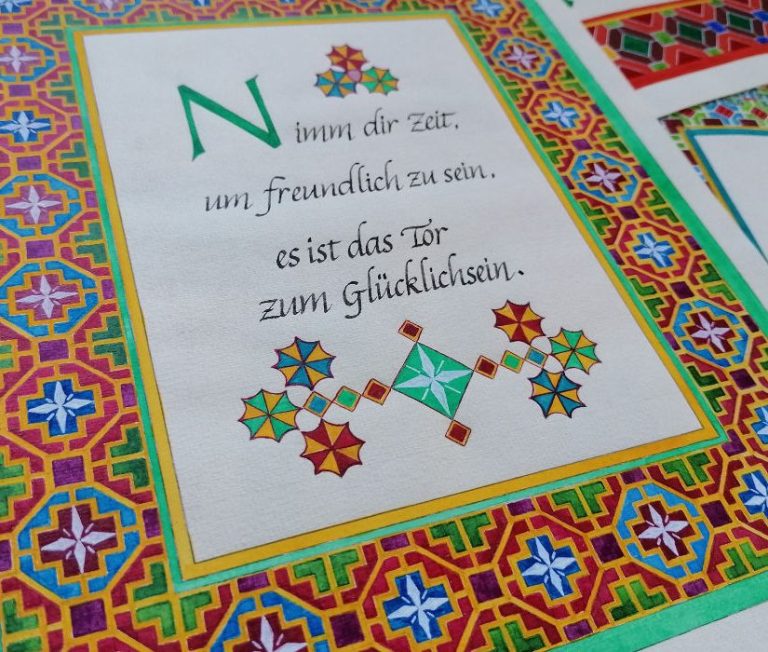 Nimm dir Zeit,
um freundlich zu sein,
es ist das Tor
zum Glücklichsein.